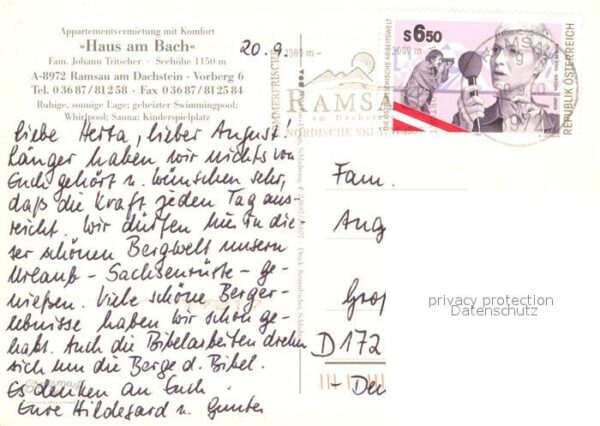 Appartementvermietung mit Komfort
»Haus am Bach«
Fam. Johann Tritscher · Seehöhe 1150 m
A-8972 Ramsau am Dachstein · Vorberg 6
Tel. 0 36 87 / 81 2 58 · Fax 0 36 87 / 81 25 84
Ruhige, sonnige Lage; geheizter Swimmingpool;
Whirlpool; Sauna; Kinderspielplatz
20.9.
Liebe Herta, lieber August!
Länger haben wir nichts von
Euch gehört u. wünschen sehr,
daß die Kraft jeden Tag aus-
reicht. Wir dürfen hier in die-
ser schönen Bergwelt unsern
Urlaub - Sachsenrüste - ge-
nießen. Viele schöne Berger-
lebnisse haben wir schon ge-
habt. Auch die Bibelarbeiten drehen
sich um die Berge d. Bibel.
Es denken an Euch
Eure Hildegard u. Gunter
SOMMERFRISCHE
RAMSAU
am Dachstein
NORDISCHE
S6,50
REPUBLIK ÖSTERREICH
Fam.
Aug
Gro
D 172
- Deu
privacy protection
Datenschutz